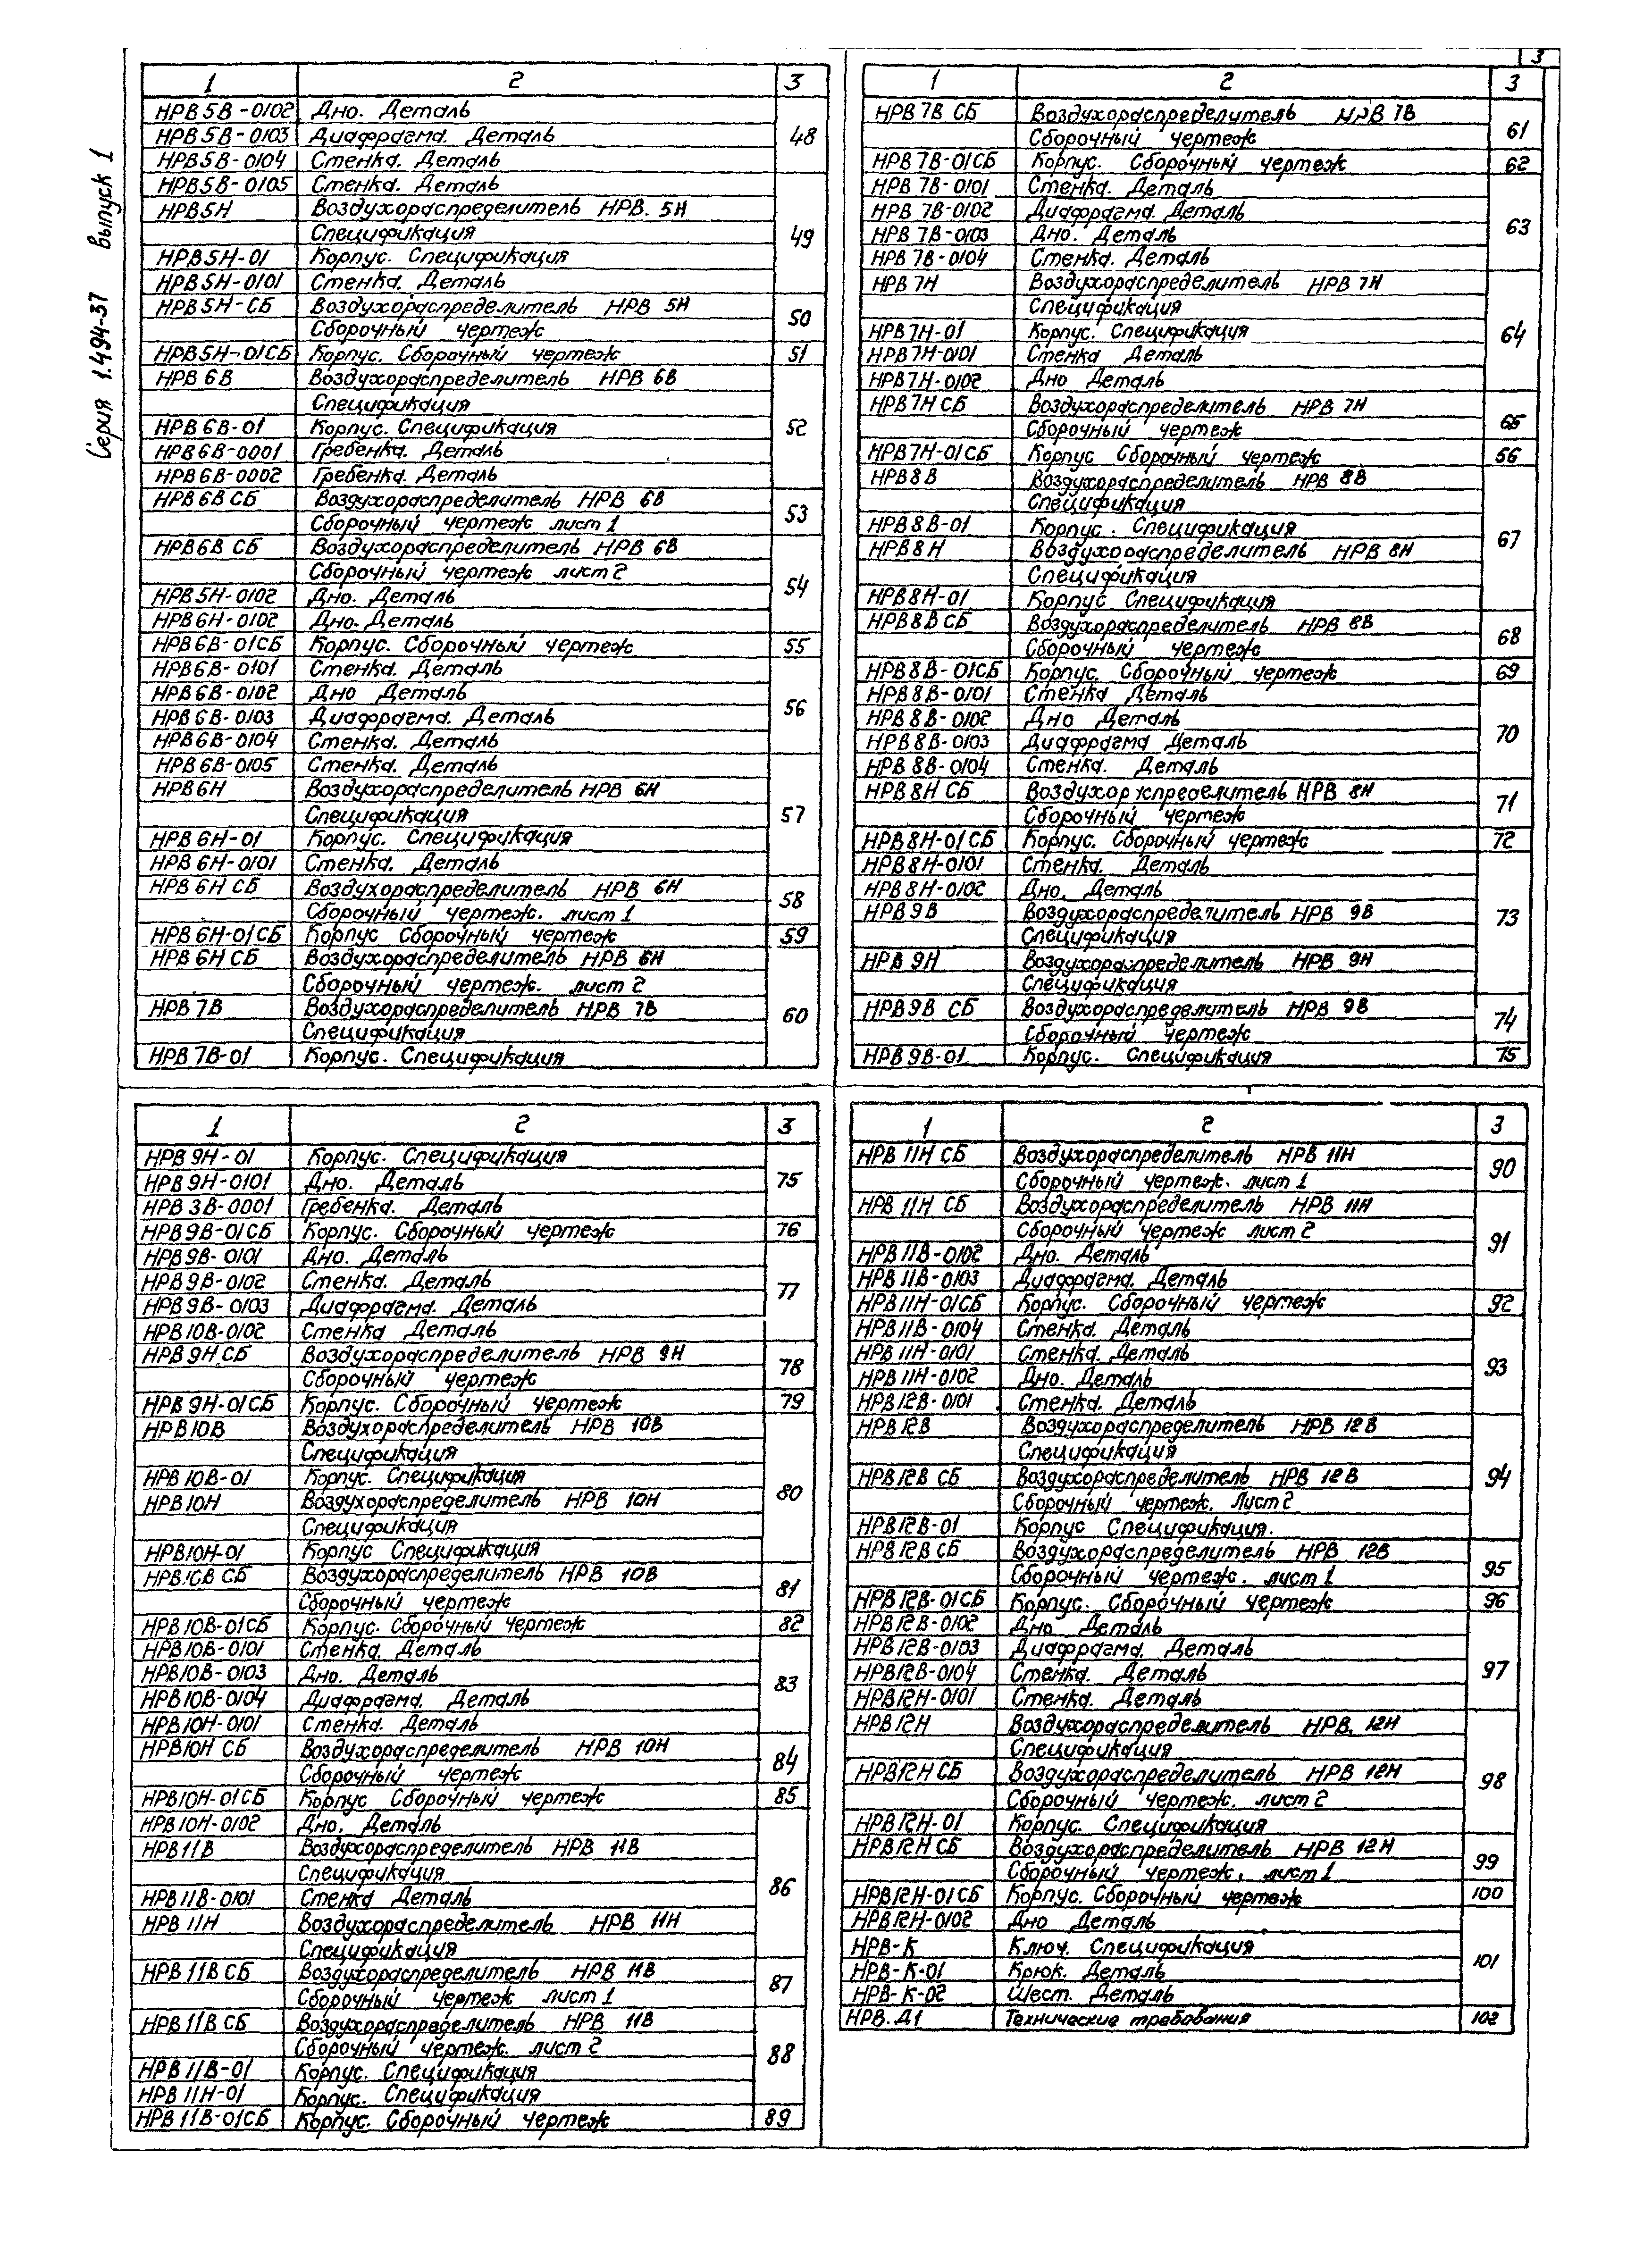 3
Серия 1.494-37 выпуск 1
1 2 3
НРВ5В-0102 Дно. Деталь
НРВ5В-0103 Диафрагма. Деталь 48
НРВ5В-0104 Стенка. Деталь
НРВ5В-0105 Стенка. Деталь
НРВ5Н Воздухораспределитель НРВ. 5Н
Спецификация 49
НРВ5Н-01 Корпус. Спецификация
НРВ5Н-0101 Стенка. Деталь
НРВ5Н-СБ Воздухораспределитель НРВ 5Н
Сборочный чертеж 50
НРВ5Н-01СБ Корпус. Сборочный чертеж 51
НРВ 6В Воздухораспределитель НРВ 6В
Спецификация
НРВ 6В-01 Корпус. Спецификация 52
НРВ6В-0001 Гребенка. Деталь
НРВ6В-0002 Гребенка. Деталь
НРВ 6В СБ Воздухораспределитель НРВ 6В
Сборочный чертеж лист 1 53
НРВ6В СБ Воздухораспределитель НРВ 6В
Сборочный чертеж лист 2
НРВ5Н-0102 Дно. Деталь 54
НРВ6Н-0102 Дно. Деталь
НРВ6В-01СБ Корпус. Сборочный чертеж 55
НРВ6В-0101 Стенка. Деталь
НРВ6В-0102 Дно Деталь
НРВ6В-0103 Диафрагма. Деталь 56
НРВ6В-0104 Стенка. Деталь
НРВ6В-0105 Стенка. Деталь
НРВ6Н Воздухораспределитель НРВ 6Н
Спецификация 57
НРВ 6Н-01 Корпус. Спецификация
НРВ 6Н-0101 Стенка. Деталь
НРВ 6Н СБ Воздухораспределитель НРВ 6Н
Сборочный чертеж. лист 1 58
НРВ 6Н-01СБ Корпус Сборочный чертеж 59
НРВ 6Н СБ Воздухораспределитель НРВ 6Н
Сборочный чертеж. лист 2
НРВ 7В Воздухораспределитель НРВ 7В 60
Спецификация
НРВ 7В-01 Корпус. Спецификация
1 2 3
НРВ 7В СБ Воздухораспределитель НРВ 7В
Сборочный чертеж 61
НРВ 7В-01СБ Корпус. Сборочный чертеж 62
НРВ 7В-0101 Стенка. Деталь
НРВ 7В-0102 Диафрагма. Деталь
НРВ 7В-0103 Дно. Деталь 63
НРВ 7В-0104 Стенка. Деталь
НРВ 7Н Воздухораспределитель НРВ 7Н
Спецификация
НРВ7Н-01 Корпус. Спецификация 64
НРВ7Н-0101 Стенка Деталь
НРВ7Н-0102 Дно Деталь
НРВ7Н СБ Воздухораспределитель НРВ 7Н
Сборочный чертеж 65
НРВ7Н-01СБ Корпус Сборочный чертеж 56
НРВ8В Воздухораспределитель НРВ 8В
Спецификация
НРВ8В-01 Корпус. Спецификация
НРВ8Н Воздухораспределитель НРВ 8Н 67
Спецификация
НРВ8Н-01 Корпус Спецификация
НРВ8В СБ Воздухораспределитель НРВ 8В
Сборочный чертеж 68
НРВ8В-01СБ Корпус. Сборочный чертеж 69
НРВ8В-0101 Стенка Деталь
НРВ8В-0102 Дно Деталь
НРВ8В-0103 Диафрагма Деталь 70
НРВ 8В-0104 Стенка. Деталь
НРВ8Н СБ Воздухораспределитель НРВ 8Н
Сборочный чертеж 71
НРВ8Н-01СБ Корпус. Сборочный чертеж 72
НРВ8Н-0101 Стенка. Деталь
НРВ8Н-0102 Дно. Деталь
НРВ9В Воздухораспределитель НРВ 9В 73
Спецификация
НРВ 9Н Воздухораспределитель НРВ 9Н
Спецификация
НРВ9В СБ Воздухораспределитель НРВ 9В
Сборочный чертеж 74
НРВ 9В-01 Корпус. Спецификация 75
1 2 3
НРВ 9Н-01 Корпус. Спецификация
НРВ 9Н-0101 Дно. Деталь 75
НРВ 3В-0001 Гребенка. Деталь
НРВ9В-01СБ Корпус. Сборочный чертеж 76
НРВ9В-0101 Дно. Деталь
НРВ9В-0102 Стенка. Деталь 77
НРВ9В-0103 Диафрагма. Деталь
НРВ10В-0102 Стенка Деталь
НРВ9Н СБ Воздухораспределитель НРВ 9Н
Сборочный чертеж 78
НРВ 9Н-01СБ Корпус. Сборочный чертеж 79
НРВ10В Воздухораспределитель НРВ 10В
Спецификация
НРВ 10В-01 Корпус. Спецификация
НРВ10Н Воздухораспределитель НРВ 10Н 80
Спецификация
НРВ10Н-01 Корпус Спецификация
НРВ10В СБ Воздухораспределитель НРВ 10В
Сборочный чертеж 81
НРВ10В-01СБ Корпус. Сборочный чертеж 82
НРВ10В-0101 Стенка. Деталь
НРВ10В-0103 Дно. Деталь
НРВ10В-0104 Диафрагма. Деталь 83
НРВ10Н-0101 Стенка. Деталь
НРВ10Н СБ Воздухораспределитель НРВ 10Н
Сборочный чертеж 84
НРВ10Н-01СБ Корпус Сборочный чертеж 85
НРВ10Н-0102 Дно. Деталь
НРВ11В Воздухораспределитель НРВ 11В
Спецификация
НРВ11В-0101 Стенка Деталь 86
НРВ 11Н Воздухораспределитель НРВ 11Н
Спецификация
НРВ 11В СБ Воздухораспределитель НРВ 11В
Сборочный чертеж лист 1 87
НРВ11В СБ Воздухораспределитель НРВ 11В
Сборочный чертеж. лист 2
НРВ11В-01 Корпус. Спецификация 88
НРВ11Н-01 Корпус. Спецификация
НРВ11В-01СБ Корпус. Сборочный чертеж 89
1 2 3
НРВ 11Н СБ Воздухораспределитель НРВ 11Н
Сборочный чертеж. лист 1 90
НРВ 11Н СБ Воздухораспределитель НРВ 11Н
Сборочный чертеж лист 2
НРВ11В-0102 Дно. Деталь 91
НРВ11В-0103 Диафрагма. Деталь
НРВ11Н-01СБ Корпус. Сборочный чертеж 92
НРВ11В-0104 Стенка. Деталь
НРВ11Н-0101 Стенка. Деталь
НРВ11Н-0102 Дно. Деталь 93
НРВ12В-0101 Стенка. Деталь
НРВ12В Воздухораспределитель НРВ 12В
Спецификация
НРВ12В СБ Воздухораспределитель НРВ 12В 94
Сборочный чертеж. Лист 2
НРВ12В-01 Корпус Спецификация.
НРВ12В СБ Воздухораспределитель НРВ 12В
Сборочный чертеж. лист 1 95
НРВ12В-01СБ Корпус. Сборочный чертеж 96
НРВ12В-0102 Дно Деталь
НРВ12В-0103 Диафрагма. Деталь
НРВ12В-0104 Стенка. Деталь 97
НРВ12Н-0101 Стенка. Деталь
НРВ12Н Воздухораспределитель НРВ. 12Н
Спецификация
НРВ12Н СБ Воздухораспределитель НРВ 12Н 98
Сборочный чертеж. лист 2
НРВ12Н-01 Корпус. Спецификация
НРВ12Н СБ Воздухораспределитель НРВ 12Н
Сборочный чертеж. лист 1 99
НРВ12Н-01СБ Корпус. Сборочный чертеж 100
НРВ12Н-0102 Дно Деталь
НРВ-К Ключ. Спецификация
НРВ-К-01 Крюк. Деталь 101
НРВ-К-02 Шест. Деталь
НРВ.Д1 Технические требования 102